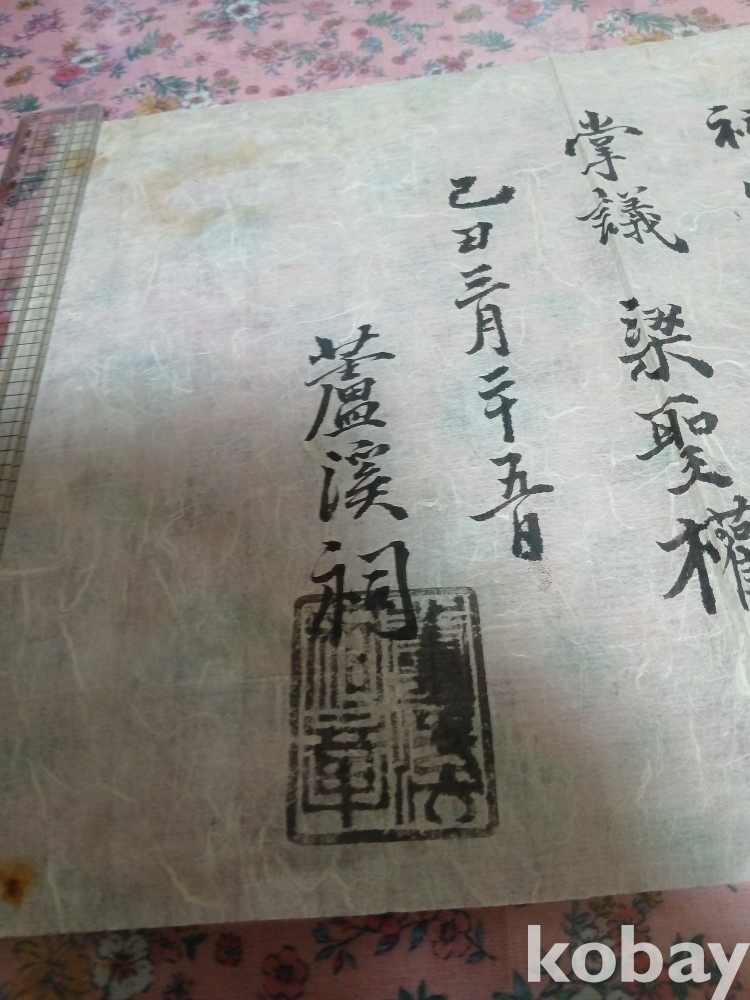 掌議 梁聖權
己丑三月二十五日
蘆溪祠
kobay